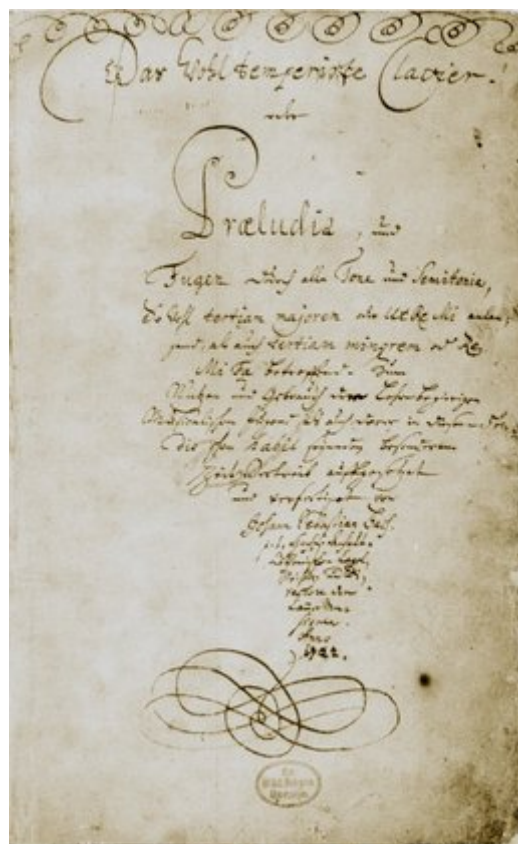 Das Wohltemperirte Clavier.
oder
Præludia, und
Fugen durch alle Tone und Semitonia,
So wohl tertiam majorem oder Ut Re Mi anlan,
gend, als auch tertiam minorem oder Re
Mi Fa betreffend. Zum
Nutzen und Gebrauch der Lehrbegierigen
Musicalischen Jugend als auch derer in diesem stu,
dio schon habil seyenden besonderen
Zeit Vertreib auffgesetzet
und verfertiget von
Johann Sebastian Bach.
p. t. Hochf. Anhalt.
Cöthenischen Capel,
Meistern und
Directore derer
Cammer Mu,
siquen.
Anno
1722.